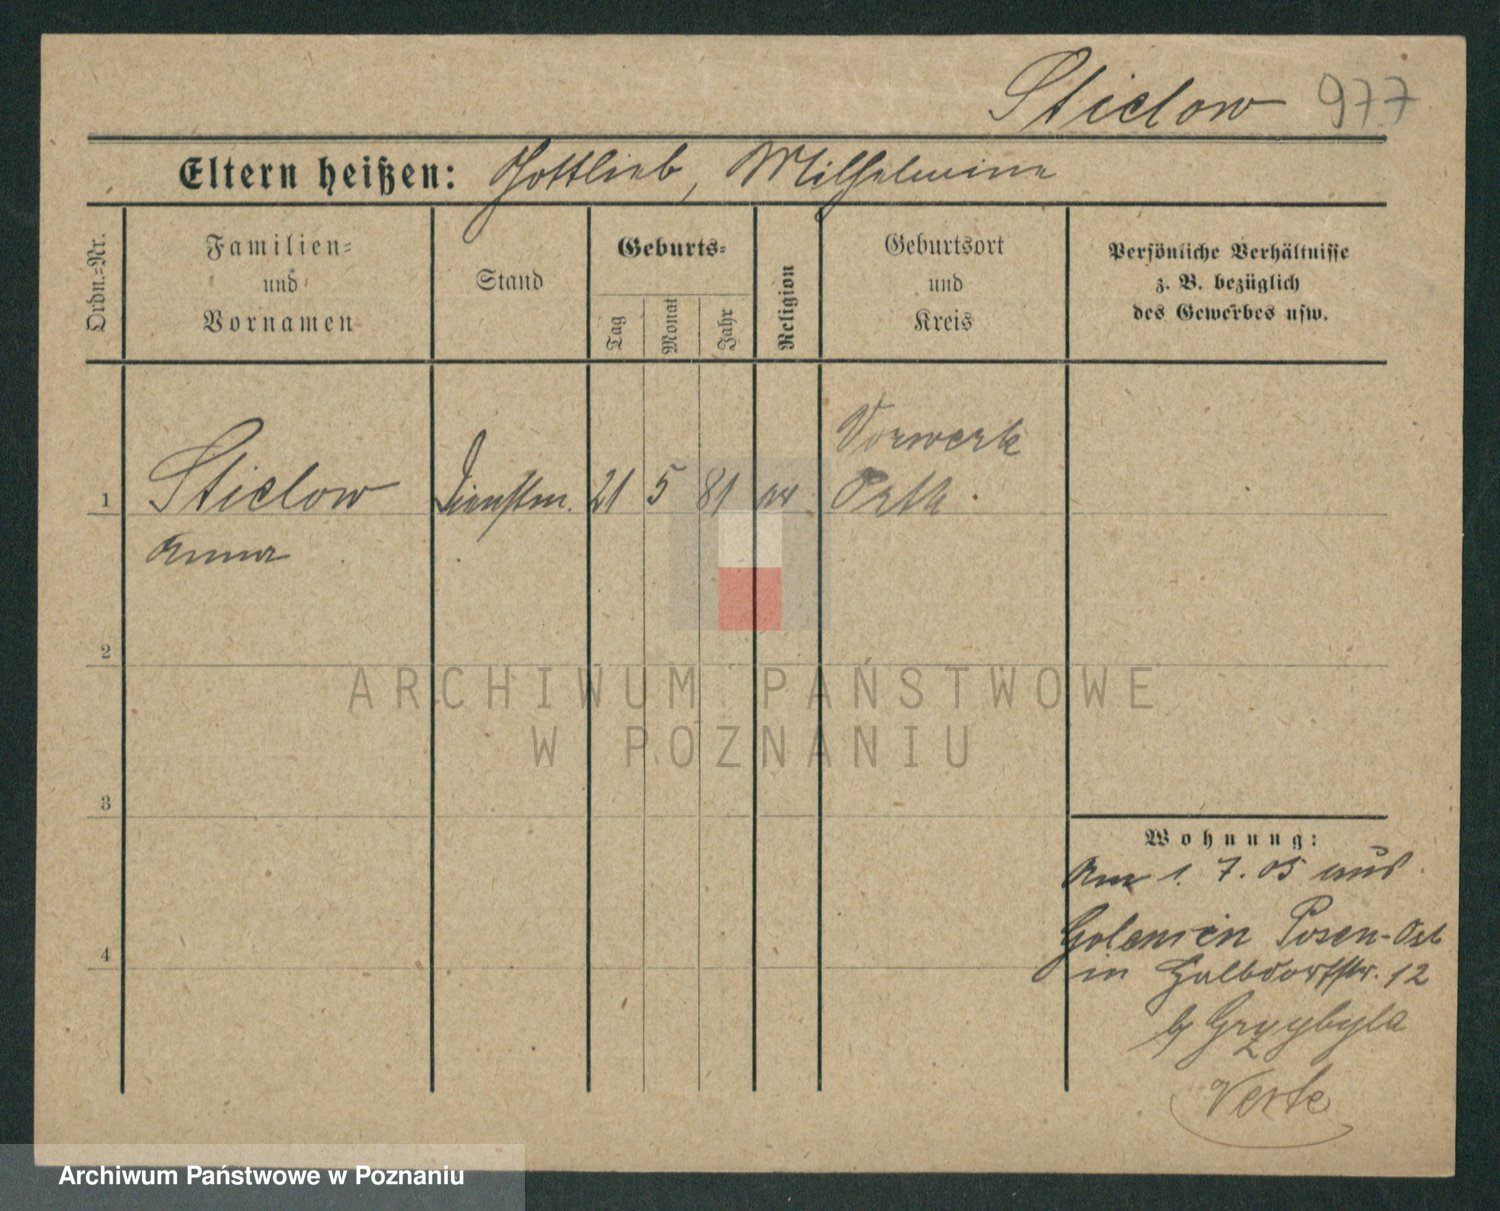 Stielow 977
Eltern heißen: Gottlieb, Wilhelmine
Ordn.=Nr.
Familien=
und
Vornamen
Stand
Geburts=
Tag
Monat
Jahr
Religion
Geburtsort
und
Kreis
Persönliche Verhältnisse
z. B. bezüglich
des Gewerbes usw.
Vorwerk
1 Stielow Dienstm. 21 5 81 ev
Anna
2
ARCHIWUM PAŃSTWOWE
W POZNANIU
3
Wohnung:
Am 1. 7. 05 aus
Golencin Posen-Ost
4
in Halbdorfstr. 12
b Grzybyla
Verte
Archiwum Państwowe w Poznaniu